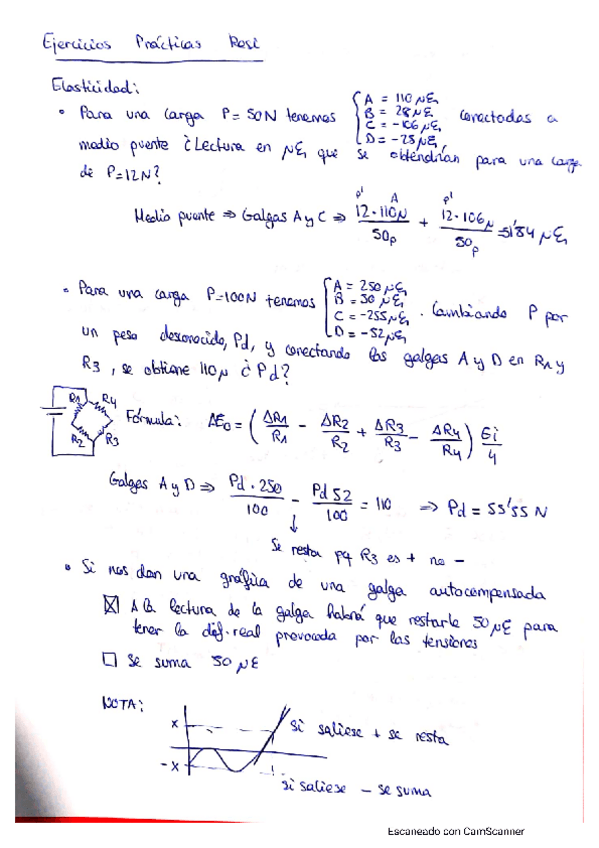 Ejercicios Prácticas Resi
Elasticidad:
• Para una carga P=50N tenemos { A = 110 με, B = 28 με, C = -106 με, D = -25 με, conectadas a
medio puente ¿Lectura en με, que se obtendrían para una carga
de P=12N?
Medio puente ⇒ Galgas A y C ⇒ P' 12·110μ A / 50 P + P' 12·106μ / 50 P = 51'84 με,
• Para una carga P=100N tenemos { A = 250 με, B = 50 με, C = -255 με, D = -52 με, . Cambiando P por
un peso desconocido, Pd, y conectando las galgas A y D en R1 y
R3, se obtiene 110μ ¿Pd?
R1 R4
R2 R3
Fórmula: ΔE0 = ( ΔR1/R1 - ΔR2/R2 + ΔR3/R3 - ΔR4/R4 ) Ei/4
Galgas A y D ⇒ Pd·250/100 - Pd 52/100 = 110 ⇒ Pd = 55'55 N
↓
Se resta pq R3 es + no -
• Si nos dan una gráfica de una galga autocompensada
☒ A la lectura de la galga habrá que restarle 50 με para
tener la def. real provocada por las tensiones
☐ Se suma 50 με
NOTA:
x
si saliese + se resta
-x
si saliese - se suma
Escaneado con CamScanner